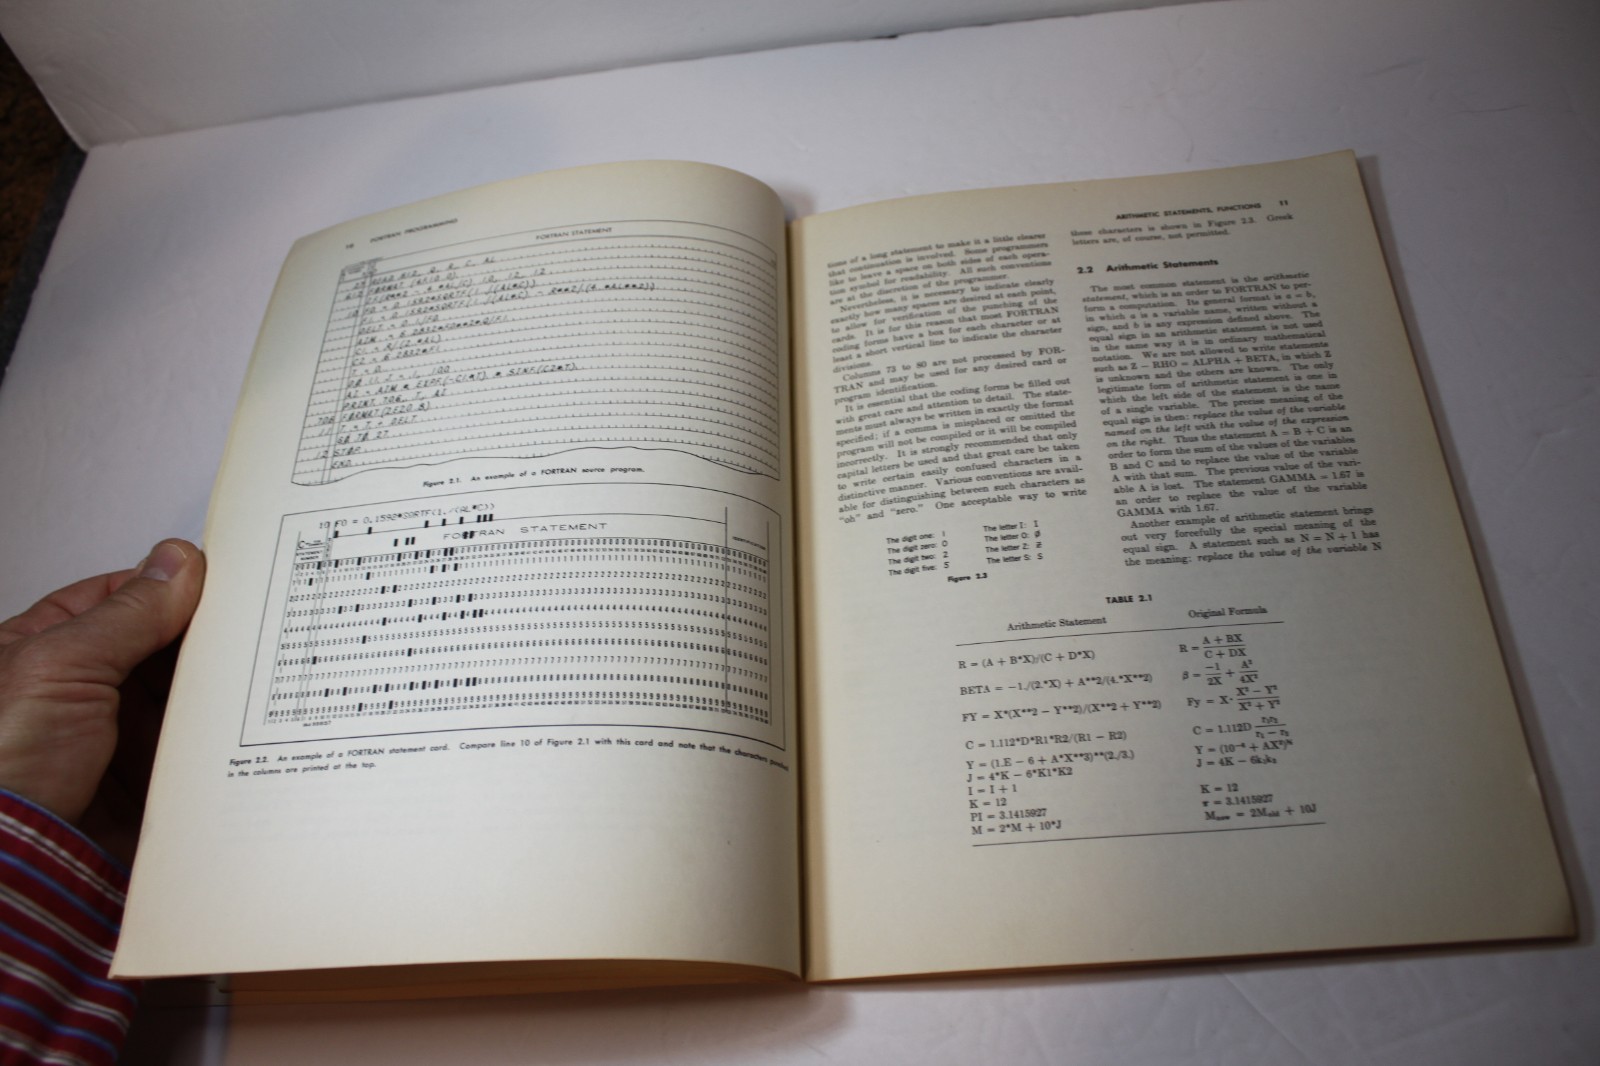 10 FORTRAN PROGRAMMING
FORTRAN STATEMENT
READ 612, Q, R, C, AL
FORMAT (4F10.0)
DELT = 0.1/F0
T = 0
PRINT 706, T, AI
706 FORMAT (2F20.8)
11 T = T + DELT
12 STOP
END
Figure 2.1. An example of a FORTRAN source program.
10 F0 = 0.1592*SQRTF(1./(AL*C))
FORTRAN STATEMENT
Figure 2.2. An example of a FORTRAN statement card. Compare line 10 of Figure 2.1 with this card and note that the characters punched
in the columns are printed at the top.
ARITHMETIC STATEMENTS, FUNCTIONS 11
tions of a long statement to make it a little clearer
that continuation is involved. Some programmers
like to leave a space on both sides of each opera-
tion symbol for readability. All such conventions
are at the discretion of the programmer.
Nevertheless, it is necessary to indicate clearly
exactly how many spaces are desired at each point,
to allow for verification of the punching of the
cards. It is for this reason that most FORTRAN
coding forms have a box for each character or at
least a short vertical line to indicate the character
divisions.
Columns 73 to 80 are not processed by FOR-
TRAN and may be used for any desired card or
program identification.
It is essential that the coding forms be filled out
with great care and attention to detail. The state-
ments must always be written in exactly the format
specified; if a comma is misplaced or omitted the
program will not be compiled or it will be compiled
incorrectly. It is strongly recommended that only
capital letters be used and that great care be taken
to write certain easily confused characters in a
distinctive manner. Various conventions are avail-
able for distinguishing between such characters as
"oh" and "zero." One acceptable way to write
The digit one: 1 The letter I: I
The digit zero: 0 The letter O: Ø
The digit two: 2 The letter Z: Ƶ
The digit five: 5 The letter S: S
Figure 2.3
these characters is shown in Figure 2.3. Greek
letters are, of course, not permitted.
2.2 Arithmetic Statements
The most common statement is the arithmetic
statement, which is an order to FORTRAN to per-
form a computation. Its general format is a = b,
in which a is a variable name, written without a
sign, and b is any expression defined above. The
equal sign in an arithmetic statement is not used
in the same way it is in ordinary mathematical
notation. We are not allowed to write statements
such as Z - RHO = ALPHA + BETA, in which Z
is unknown and the others are known. The only
legitimate form of arithmetic statement is one in
which the left side of the statement is the name
of a single variable. The precise meaning of the
equal sign is then: replace the value of the variable
named on the left with the value of the expression
on the right. Thus the statement A = B + C is an
order to form the sum of the values of the variables
B and C and to replace the value of the variable
A with that sum. The previous value of the vari-
able A is lost. The statement GAMMA = 1.67 is
an order to replace the value of the variable
GAMMA with 1.67.
Another example of arithmetic statement brings
out very forcefully the special meaning of the
equal sign. A statement such as N = N + 1 has
the meaning: replace the value of the variable N
TABLE 2.1
Arithmetic Statement Original Formula
R = (A + B*X)/(C + D*X) R = A + BX / C + DX
BETA = -1./(2.*X) + A**2/(4.*X**2) β = -1/2X + A²/4X²
FY = X*(X**2 - Y**2)/(X**2 + Y**2) Fy = X· X² - Y² / X² + Y²
C = 1.112*D*R1*R2/(R1 - R2) C = 1.112D r₁r₂ / r₁ - r₂
Y = (1.E - 6 + A*X**3)**(2./3.) Y = (10⁻⁶ + AX³)⅔
J = 4*K - 6*K1*K2 J = 4K - 6k₁k₂
I = I + 1
K = 12 K = 12
PI = 3.1415927 π = 3.1415927
M = 2*M + 10*J Mnew = 2Mold + 10J